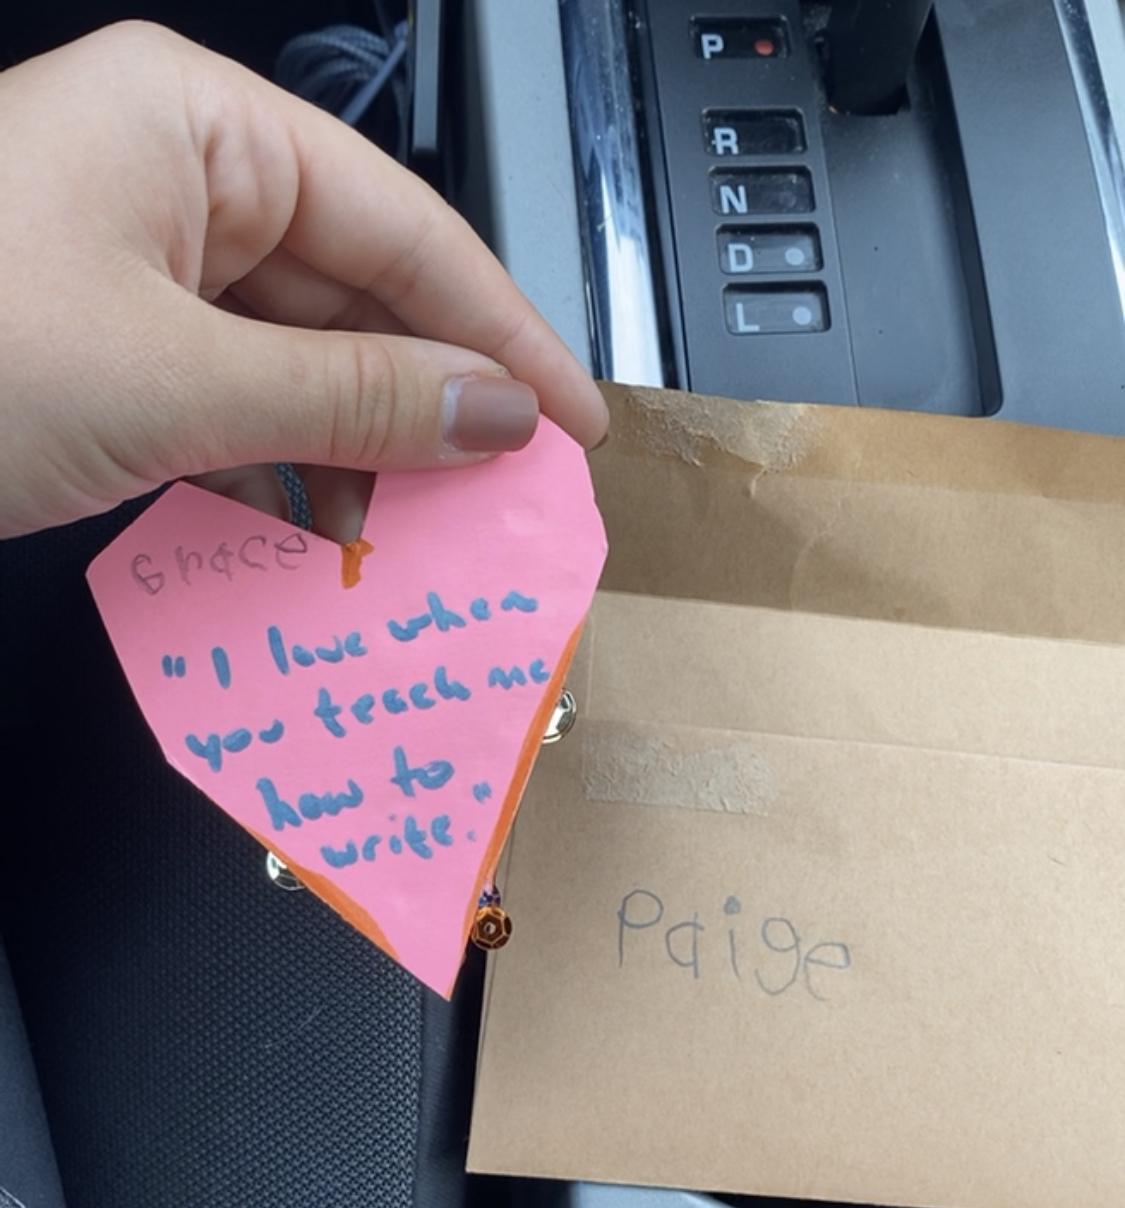 P
R
N
D
L
Grace
"I love when
you teach me
how to
write."
Paige